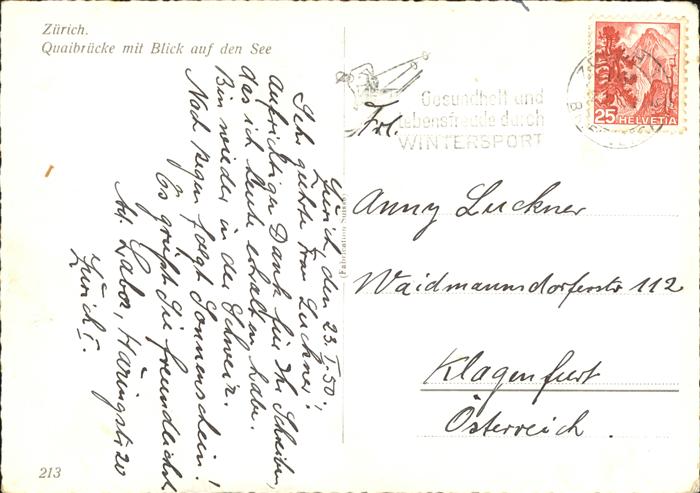 Zürich.
Quaibrücke mit Blick auf den See
Zürich den 23.I.50.
Sehr geehrte Frau Luckner!
Aufrichtigen Dank für Ihr Schreiben,
das ich heute erhalten habe.
Bin wieder in der Schweiz.
Nach Regen folgt Sonnenschein!
Es grüßt Sie freundlichst
Labor, Häringstr 20
Zürich I.
213
Gesundheit und
Lebensfreude durch
WINTERSPORT
25 HELVETIA
Frl.
Anny Luckner
Waidmannsdorferstr 112
Klagenfurt
Österreich.